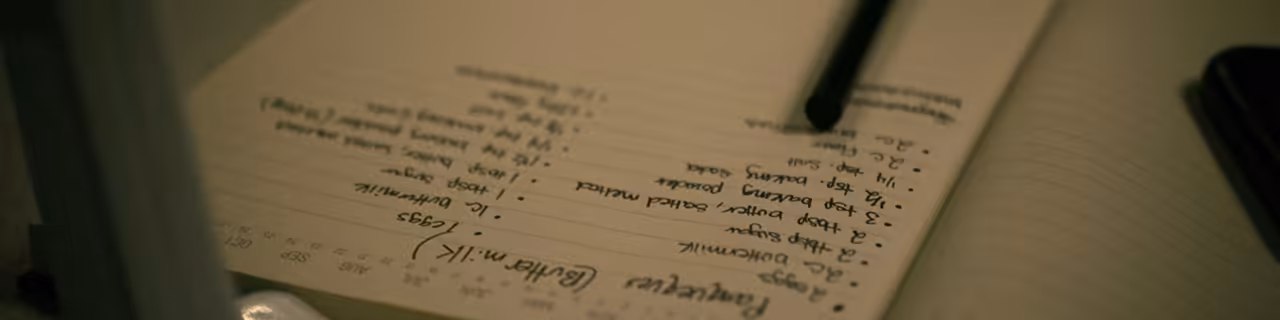 JUN JUL AUG SEP OCT
Panqueques (Buttermilk)
• 2 eggs
• 2 c. buttermilk
• 2 tbsp sugar
• 2 tbsp butter, salted melted
• 3 tsp baking powder
• 1/2 tsp. baking soda
• 1/4 tsp. salt
• 2 c. flour
• 1 eggs
• 1c. buttermilk
• 1 tbsp sugar
• 1 tbsp butter, salted melted
• 1 1/2 tsp baking powder
• 1/4 tsp baking soda
• 1/8 tsp salt